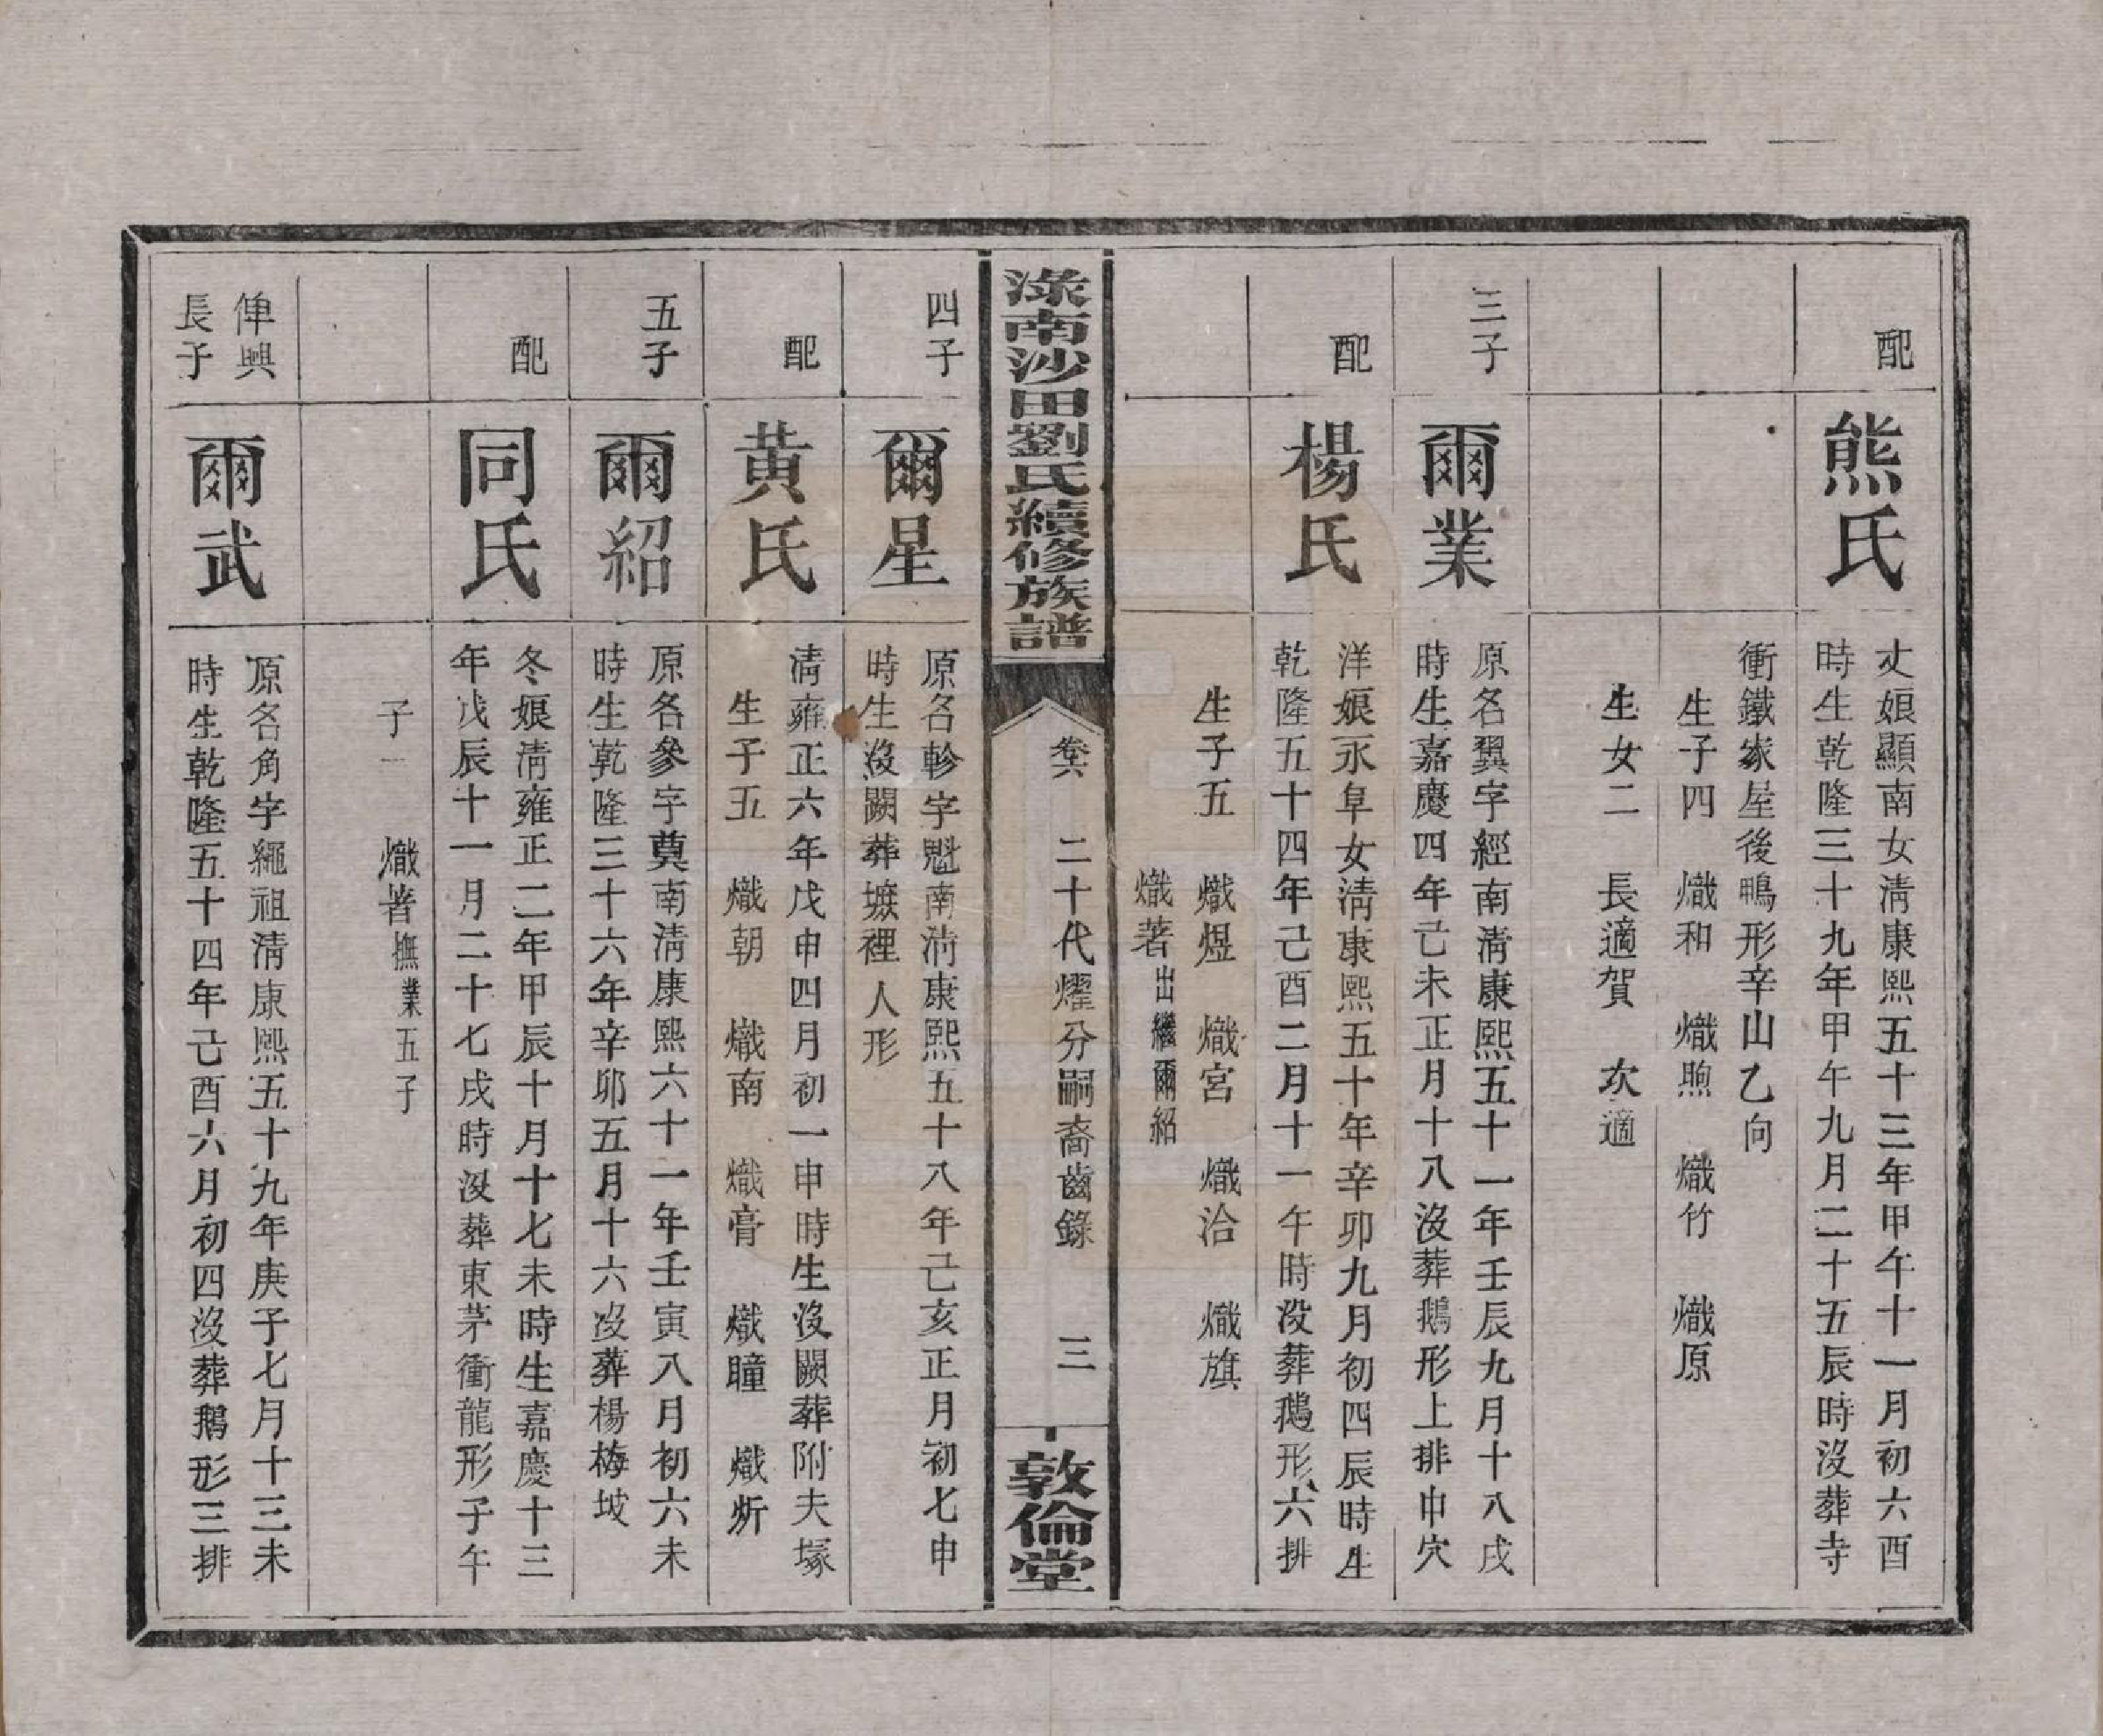 配
熊氏
丈娘顯南女淸康熙五十三年甲午十一月初六酉
時生乾隆三十九年甲午九月二十五辰時沒葬寺
衝鐵家屋後鴨形辛山乙向
生子四　熾和　熾煦　熾竹　熾原
生女二　長適賀　次適
三子
爾業
原名翼字經南淸康熙五十一年壬辰九月十八戌
時生嘉慶四年己未正月十八沒葬鵝形上排申穴
配
楊氏
洋娘永阜女淸康熙五十年辛卯九月初四辰時生
乾隆五十四年己酉二月十一午時沒葬鵝形六排
生子五　熾煜　熾宮　熾洽　熾旗
熾著出繼爾紹
淥南沙田劉氏續修族譜
卷六　二十代燿分嗣裔齒錄　三
敦倫堂
四子
爾星
原名軫字魁南淸康熙五十八年己亥正月初七申
時生沒闕葬塘裡人形
配
黃氏
淸雍正六年戊申四月初一申時生沒闕葬附夫塚
生子五　熾朝　熾南　熾膏　熾瞳　熾炘
五子
爾紹
原名參字奠南淸康熙六十一年壬寅八月初六未
時生乾隆三十六年辛卯五月十六沒葬楊梅坡
配
同氏
冬娘淸雍正二年甲辰十月十七未時生嘉慶十三
年戊辰十一月二十七戌時沒葬東茅衝龍形子午
子一　熾著撫業五子
俥興
長子
爾武
原名角字繩祖淸康熙五十九年庚子七月十三未
時生乾隆五十四年己酉六月初四沒葬鵝形三排